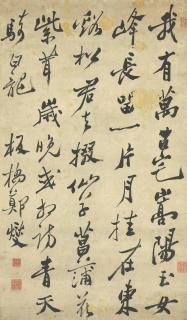 我有萬古宅嵩陽玉女
峰長留一片月挂在東
谿松君去掇仙子菖蒲花
紫茸歲晚或相訪青天
騎白龍 板橋鄭燮